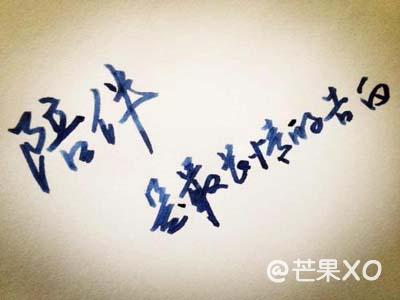 陪伴
是最长情的告白
@芒果XO